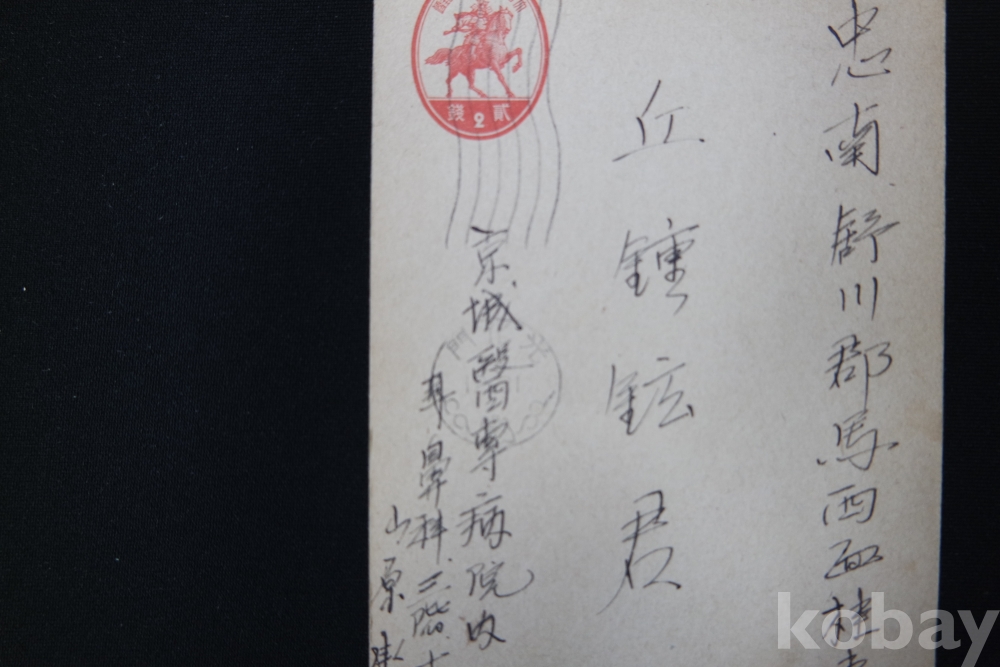 忠南舒川郡馬西面桂
丘鍾鉉君
京城醫專病院内
耳鼻科三階
山原
錢2貳
光 門
kobay